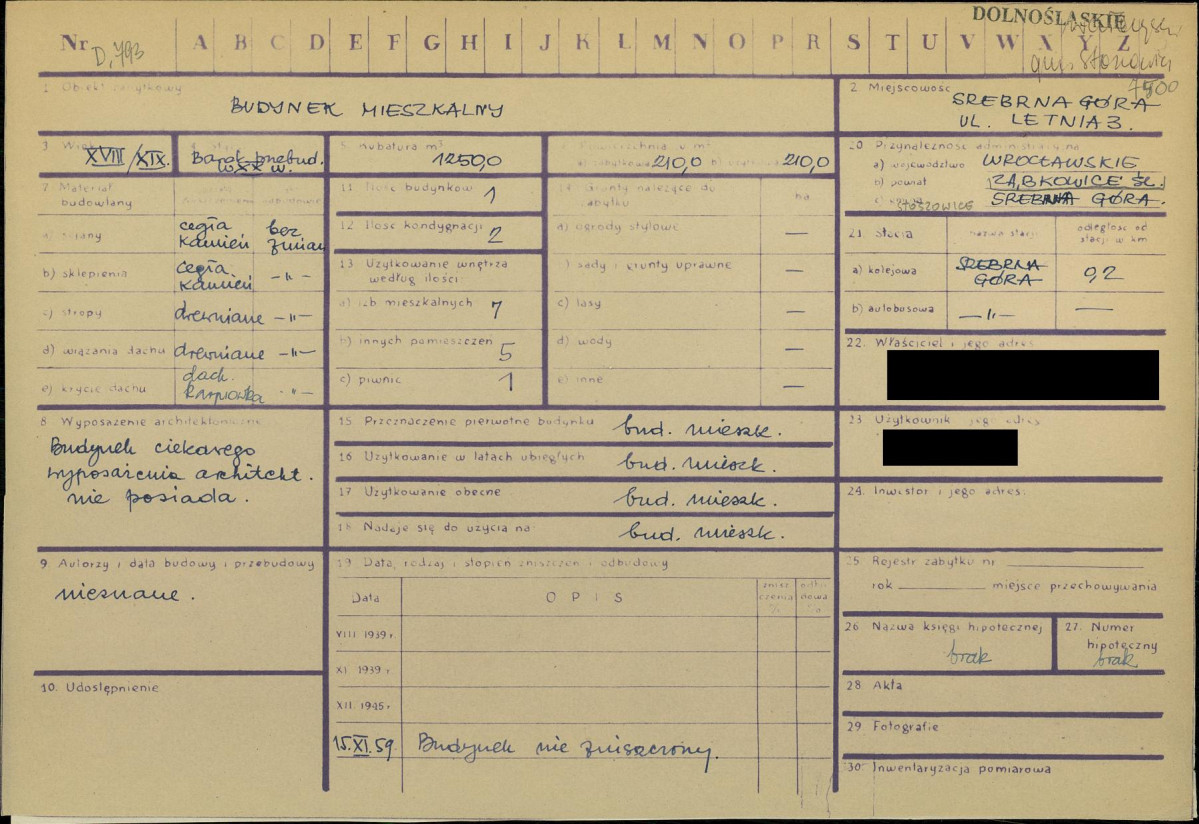 DOLNOŚLĄSKIE
Nr D,793 A B C D E F G H I J K L M N O P R S T U V W X Y Z
gm. Stoszowice
1 Obiekt zabytkowy
BUDYNEK MIESZKALNY
2 Miejscowość
SREBRNA GÓRA
UL. LETNIA 3.
3 Wiek
XVIII/XIX.
Barok przebud.
w XX w.
5 Kubatura m³
1250,0
w m²
210,0
210,0
20 Przynależność administracyjna
a) województwo WROCŁAWSKIE
b) powiat ZĄBKOWICE ŚL.
STOSZOWICE SREBRNA GÓRA.
7 Materiał
budowlany
a) ściany cegła kamień bez zmian
b) sklepienia cegła kamień -"-
c) stropy drewniane -"-
d) wiązania dachu drewniane -"-
e) krycie dachu dach. karpiówka -"-
11 Ilość budynków 1
12 Ilość kondygnacji 2
13 Użytkowanie wnętrza
według ilości
a) izb mieszkalnych 7
b) innych pomieszczeń 5
c) piwnic 1
14 Grunty należące do
zabytku
ha
a) ogrody stylowe —
b) sady i grunty uprawne —
c) lasy —
d) wody —
e) inne —
21 Stacja nazwa stacji odległość od
stacji w km
a) kolejowa SREBRNA
GÓRA 0,2
b) autobusowa —"— —
22. Właściciel i jego adres
8 Wyposażenie architektoniczne
Budynek ciekawego
wyposażenia architekt.
nie posiada.
15 Przeznaczenie pierwotne budynku bud. mieszk.
16 Użytkowanie w latach ubiegłych bud. mieszk.
17 Użytkowanie obecne bud. mieszk.
18 Nadaje się do użycia na bud. mieszk.
23 Użytkownik i jego adres
24. Inwestor i jego adres:
9 Autorzy i data budowy i przebudowy
nieznane.
10. Udostępnienie
19 Data, rodzaj i stopień zniszczeń i odbudowy
Data OPIS zniszczenia % odbudowa %
VIII 1939 r
XI 1939 r
XII 1945 r
15.XI.59 Budynek nie zniszczony.
25 Rejestr zabytku nr
rok miejsce przechowywania
26 Nazwa księgi hipotecznej
brak
27. Numer
hipoteczny
brak
28 Akta
29 Fotografie
30. Inwentaryzacja pomiarowa